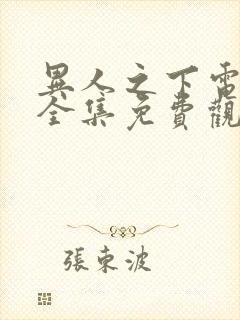 異人之下電
全集免費觀
張東波